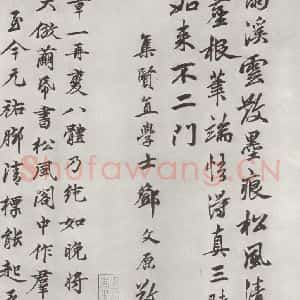 雨溪雲散墨痕松風清
塵根筆端悟得真三昧
如来不二門
集賢直學士鄧文原敬
章一再變八體乃純如晚將
大傲繭𢃄書松風閣中作羣
至今元祐脚清標能起吾
Shufawang.CN